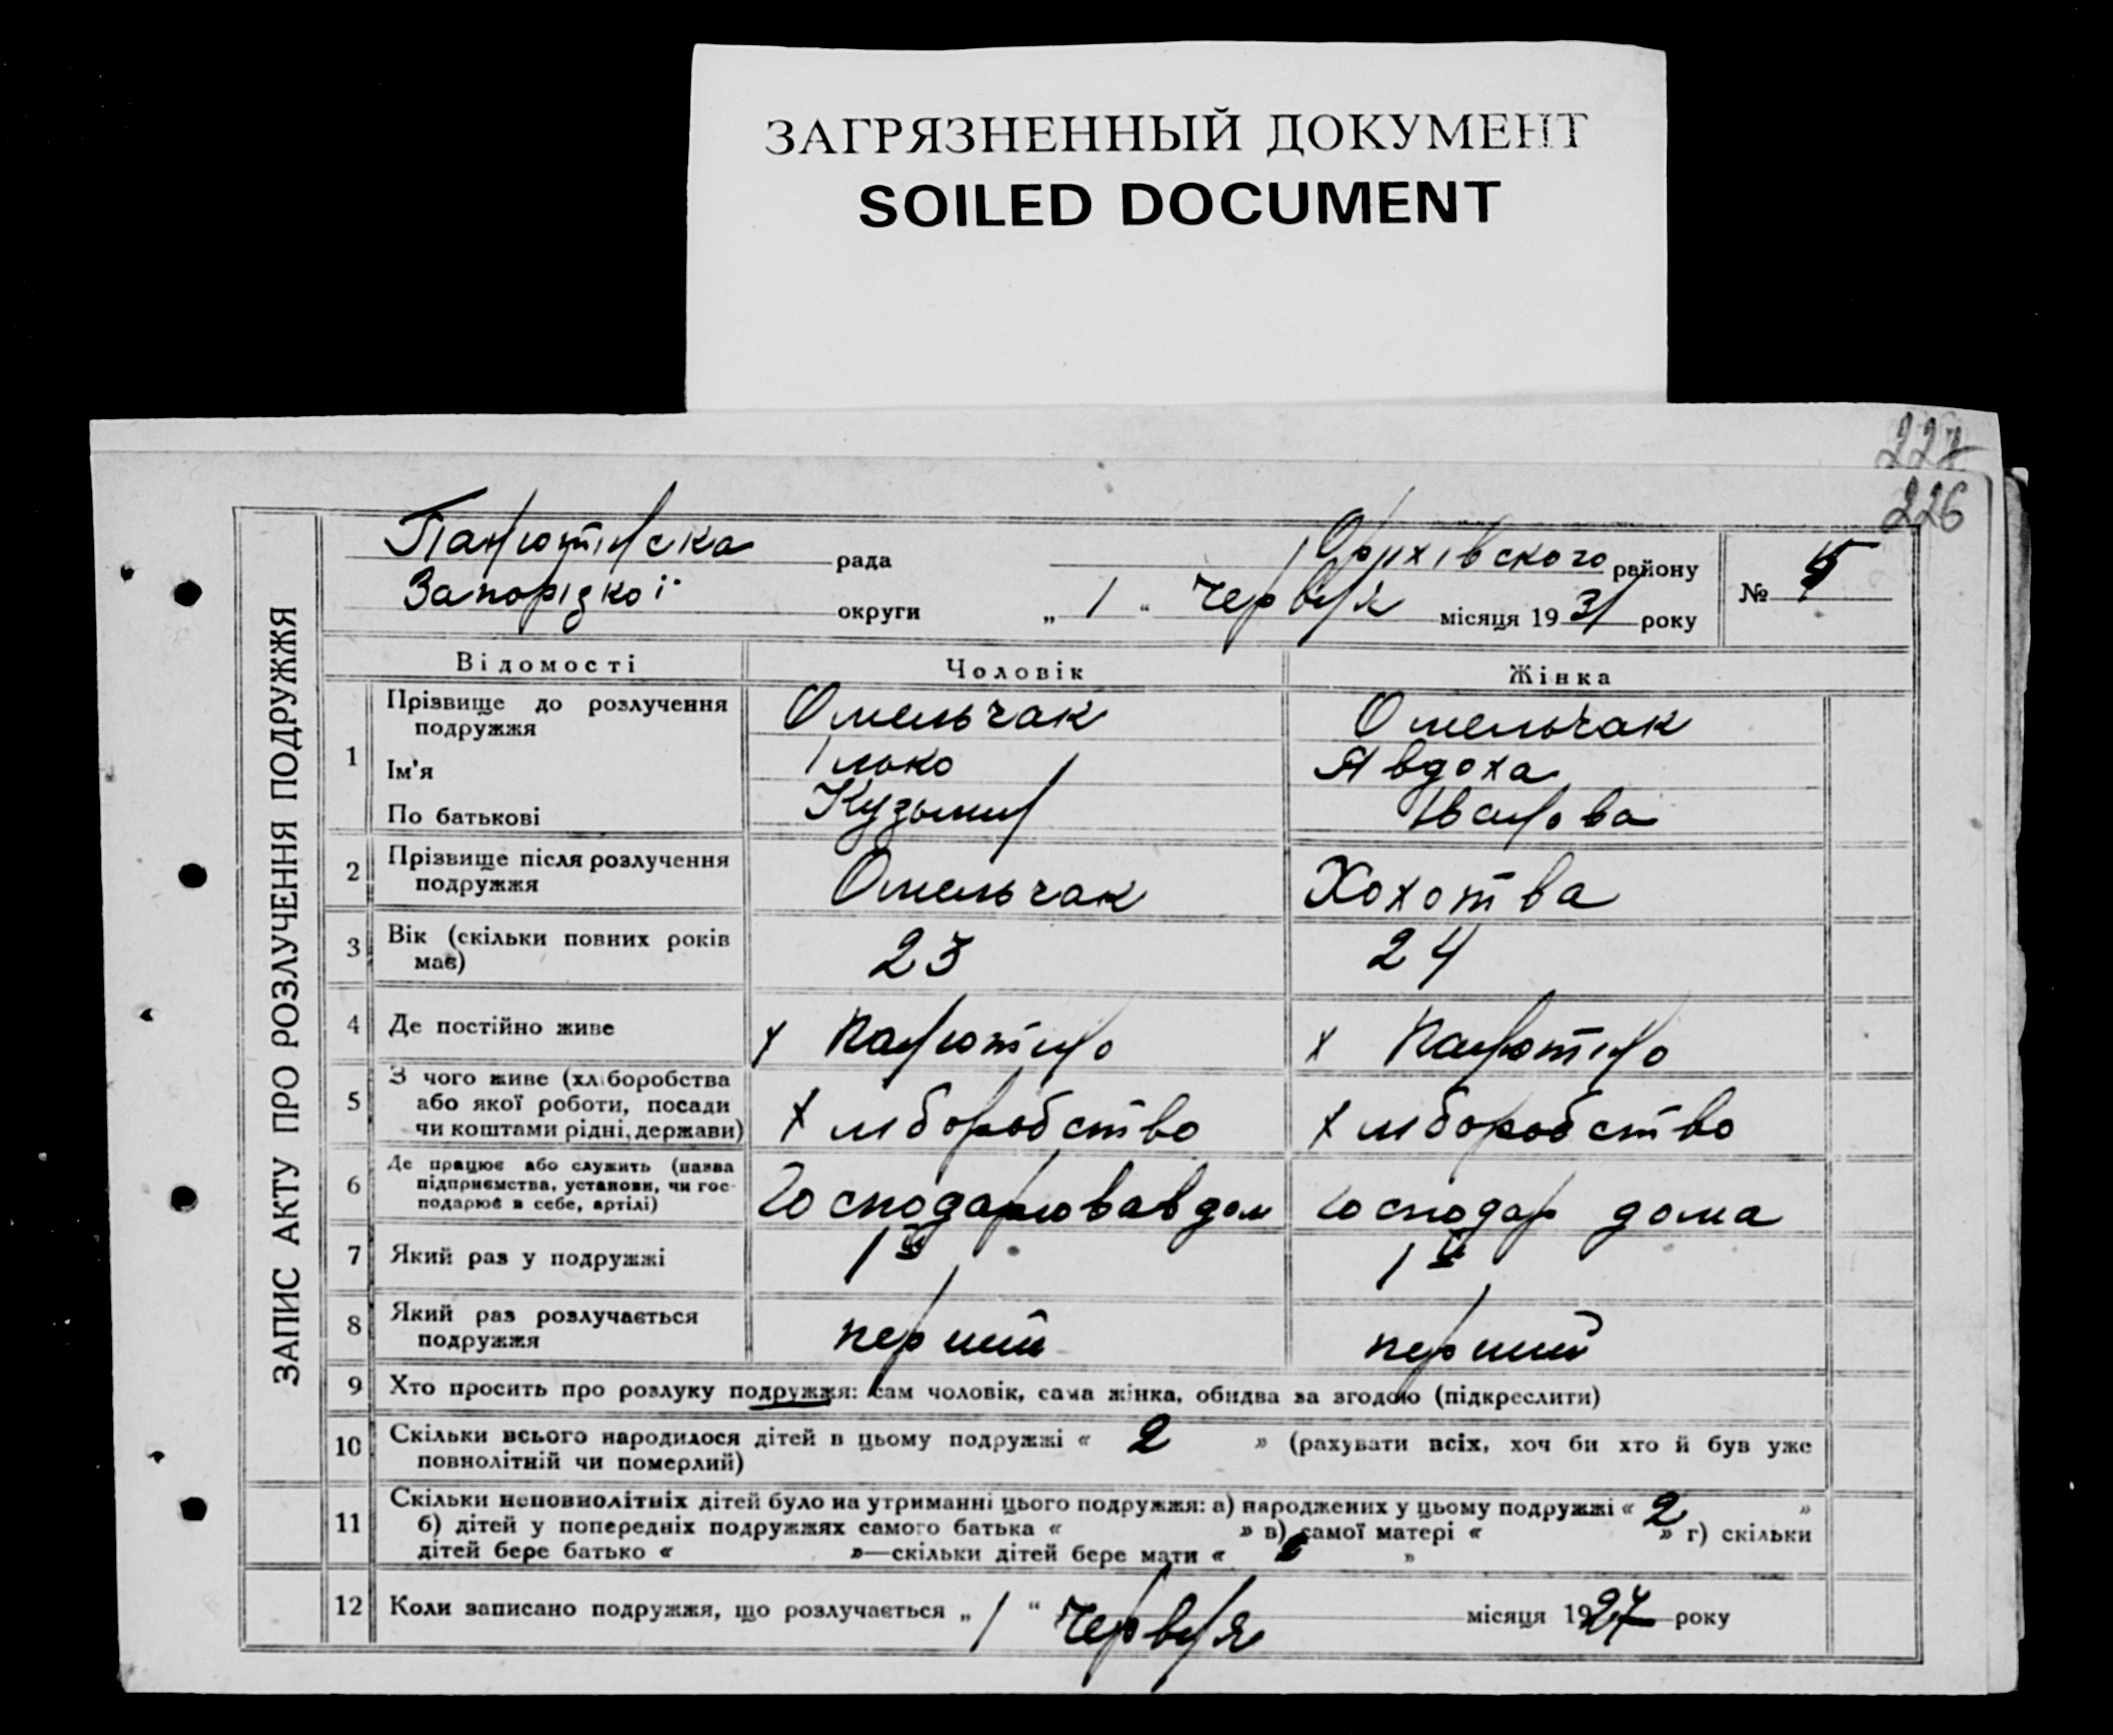 ЗАГРЯЗНЕННЫЙ ДОКУМЕНТ
SOILED DOCUMENT
227
226
ЗАПИС АКТУ ПРО РОЗЛУЧЕННЯ ПОДРУЖЖЯ
Панютинска рада Оріхівского району
Запорізкої округи „ 1 “ червня місяця 1931 року
№ 5
Відомості Чоловік Жінка
1 Прізвище до розлучення подружжя Омельчак Омельчак
Ім'я Ілько Явдоха
По батькові Кузьмич Іванова
2 Прізвище після розлучення подружжя Омельчак Хохотва
3 Вік (скільки повних років має) 23 24
4 Де постійно живе х Панютино х Панютино
5 З чого живе (хліборобства або якої роботи, посади чи коштами рідні, держави) Хліборобство Хліборобство
6 Де працює або служить (назва підприємства, установи, чи господарює в себе, артілі) Господарював дом господар дома
7 Який раз у подружжі 1й 1й
8 Який раз розлучається подружжя перший перший
9 Хто просить про розлуку подружжя: сам чоловік, сама жінка, обидва за згодою (підкреслити)
10 Скільки всього народилося дітей в цьому подружжі « 2 » (рахувати всіх, хоч би хто й був уже
повнолітній чи померлий)
11 Скільки неповнолітніх дітей було на утриманні цього подружжя: а) народжених у цьому подружжі « 2 »
б) дітей у попередніх подружжях самого батька « » в) самої матері « » г) скільки
дітей бере батько « »—скільки дітей бере мати « »
12 Коли записано подружжя, що розлучається „ 1 “ червня місяця 1927 року